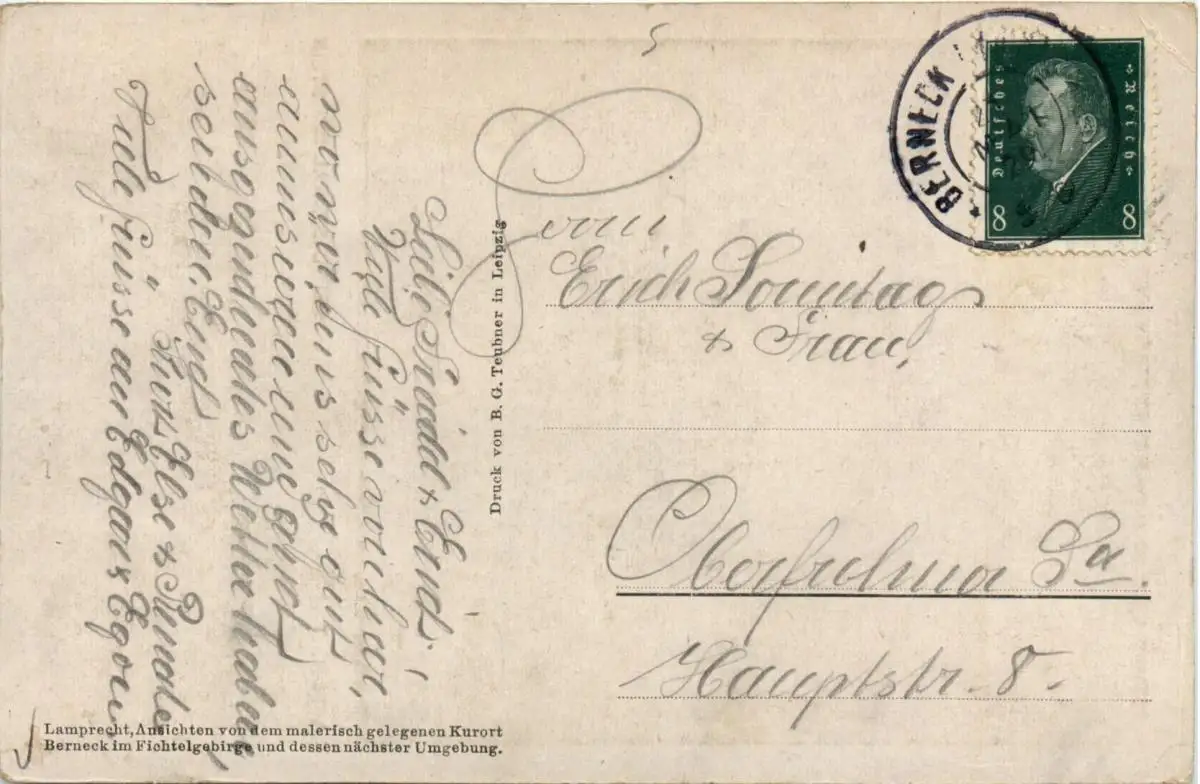 Liebe Friedel & Erich!
Viele Grüsse von hier,
wo wir, uns sehr gut
amüsieren und gehnd
ausogendeales Wetter haben
seid Ernd
Kurt Else &
Viele Grüsse an Edgar & Egon
Druck von B. G. Teubner in Leipzig
Lamprecht, Ansichten von dem malerisch gelegenen Kurort
Berneck im Fichtelgebirge und dessen nächster Umgebung.
BERNECK
Deutsches
Reich
8 8
Erich Sonntag
& Frau,
Oberfrohna Sa.
Hauptstr. 8.
5